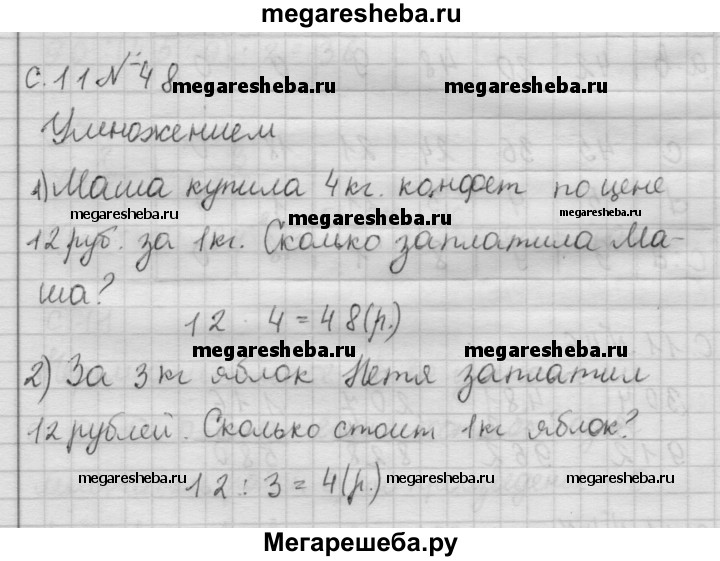 megaresheba.ru
с.11 № 48
megaresheba.ru megaresheba.ru
Умножением
1) Маша купила 4 кг. конфет по цене
megaresheba.ru megaresheba.ru megaresheba.ru
12 руб. за 1 кг. Сколько заплатила Ма-
ша?
12 · 4 = 48 (р.)
megaresheba.ru megaresheba.ru
2) За 3 кг яблок Петя заплатил
12 рублей. Сколько стоит 1 кг яблок?
megaresheba.ru megaresheba.ru megaresheba.ru
12 : 3 = 4 (р.)
Мегарешеба.ру